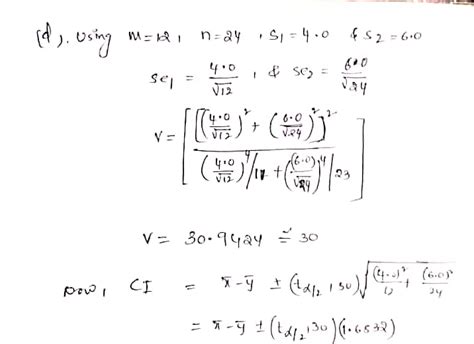 (d). Using m=12, n=24, S₁=4.0 & S₂=6.0
se₁ = 4.0/√12, & se₂ = 6.0/√24
V = [[(4.0/√12)² + (6.0/√24)²]² / (4.0/√12)⁴/11 + ((6.0)/√24)⁴/23]
V = 30.9424 ≃ 30
Now, CI = x̄-ȳ ± (t_α/2, 30) √((4.0)²/12 + (6.0)²/24)
= x̄-ȳ ± (t_α/2, 30) (1.6832)